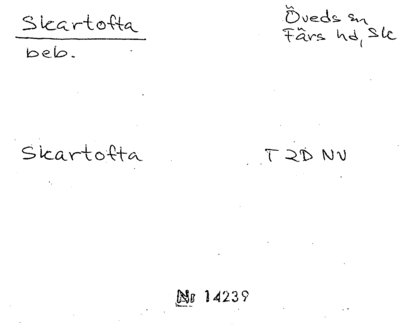 Skartofta
beb.
Öveds sn
Färs hd, Sk
Skartofta
T 2D NV
Nr 14239